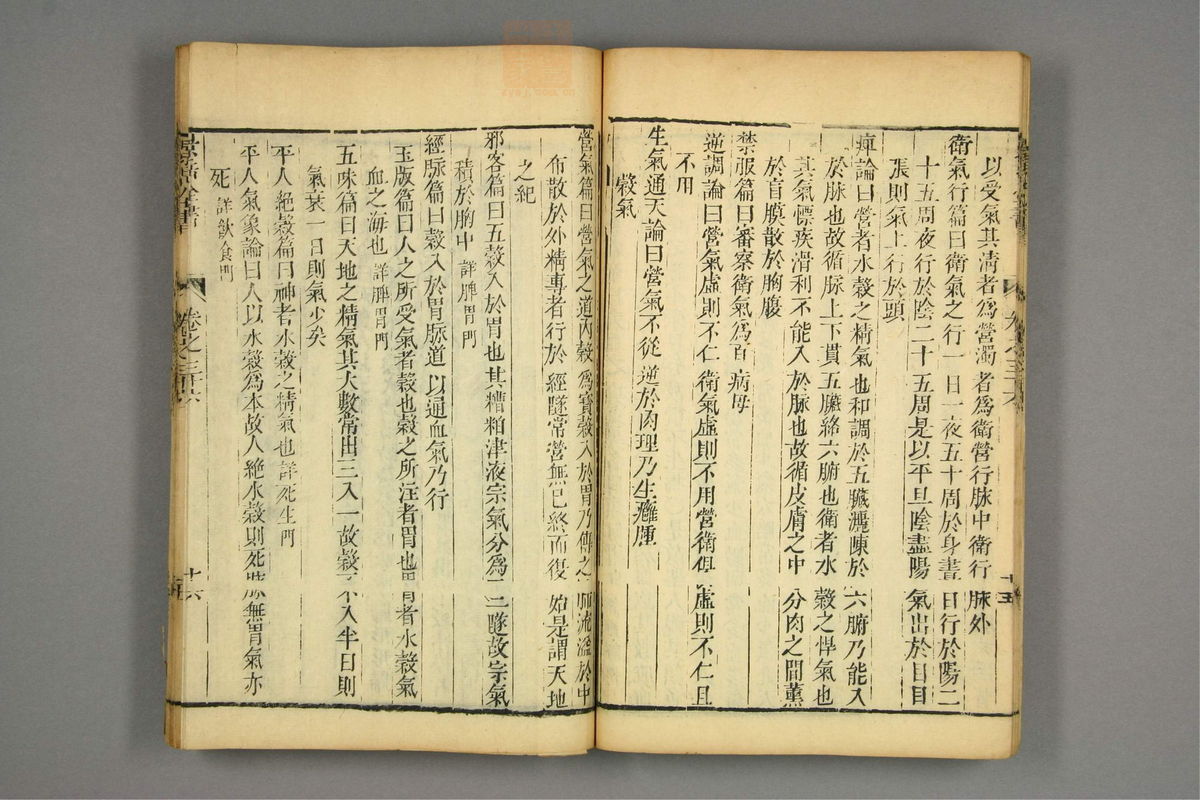 以受氣其淸者爲營濁者爲衛營行脉中衛行脉外
衛氣行篇曰衛氣之行一日一夜五十周於身晝日行於陽二
十五周夜行於陰二十五周是以平旦陰盡陽氣出於目目
張則氣上行於頭
痺論曰營者水穀之精氣也和調於五臟灑陳於六腑乃能入
於脉也故循脉上下貫五臟絡六腑也衛者水穀之悍氣也
其氣慓疾滑利不能入於脉也故循皮膚之中分肉之間薰
於肓膜散於胸腹
禁服篇曰審察衛氣爲百病母
逆調論曰營氣虛則不仁衛氣虛則不用營衛俱虛則不仁且
不用
生氣通天論曰營氣不從逆於肉理乃生癰腫
穀氣
十五
營氣篇曰營氣之道內穀爲寶穀入於胃乃傳之肺流溢於中
布散於外精專者行於經隧常營無已終而復始是謂天地
之紀
邪客篇曰五穀入於胃也其糟粕津液宗氣分爲三隧故宗氣
積於胸中 詳脾胃門
經脉篇曰穀入於胃脉道以通血氣乃行
玉版篇曰人之所受氣者穀也穀之所注者胃也胃者水穀氣
血之海也 詳脾胃門
五味篇曰天地之精氣其大數常出三入一故穀不入半日則
氣衰一日則氣少矣
平人絶穀篇曰神者水穀之精氣也 詳死生門
平人氣象論曰人以水穀爲本故人絶水穀則死脉無胃氣亦
死 詳飮食門
卷之三十六
十六